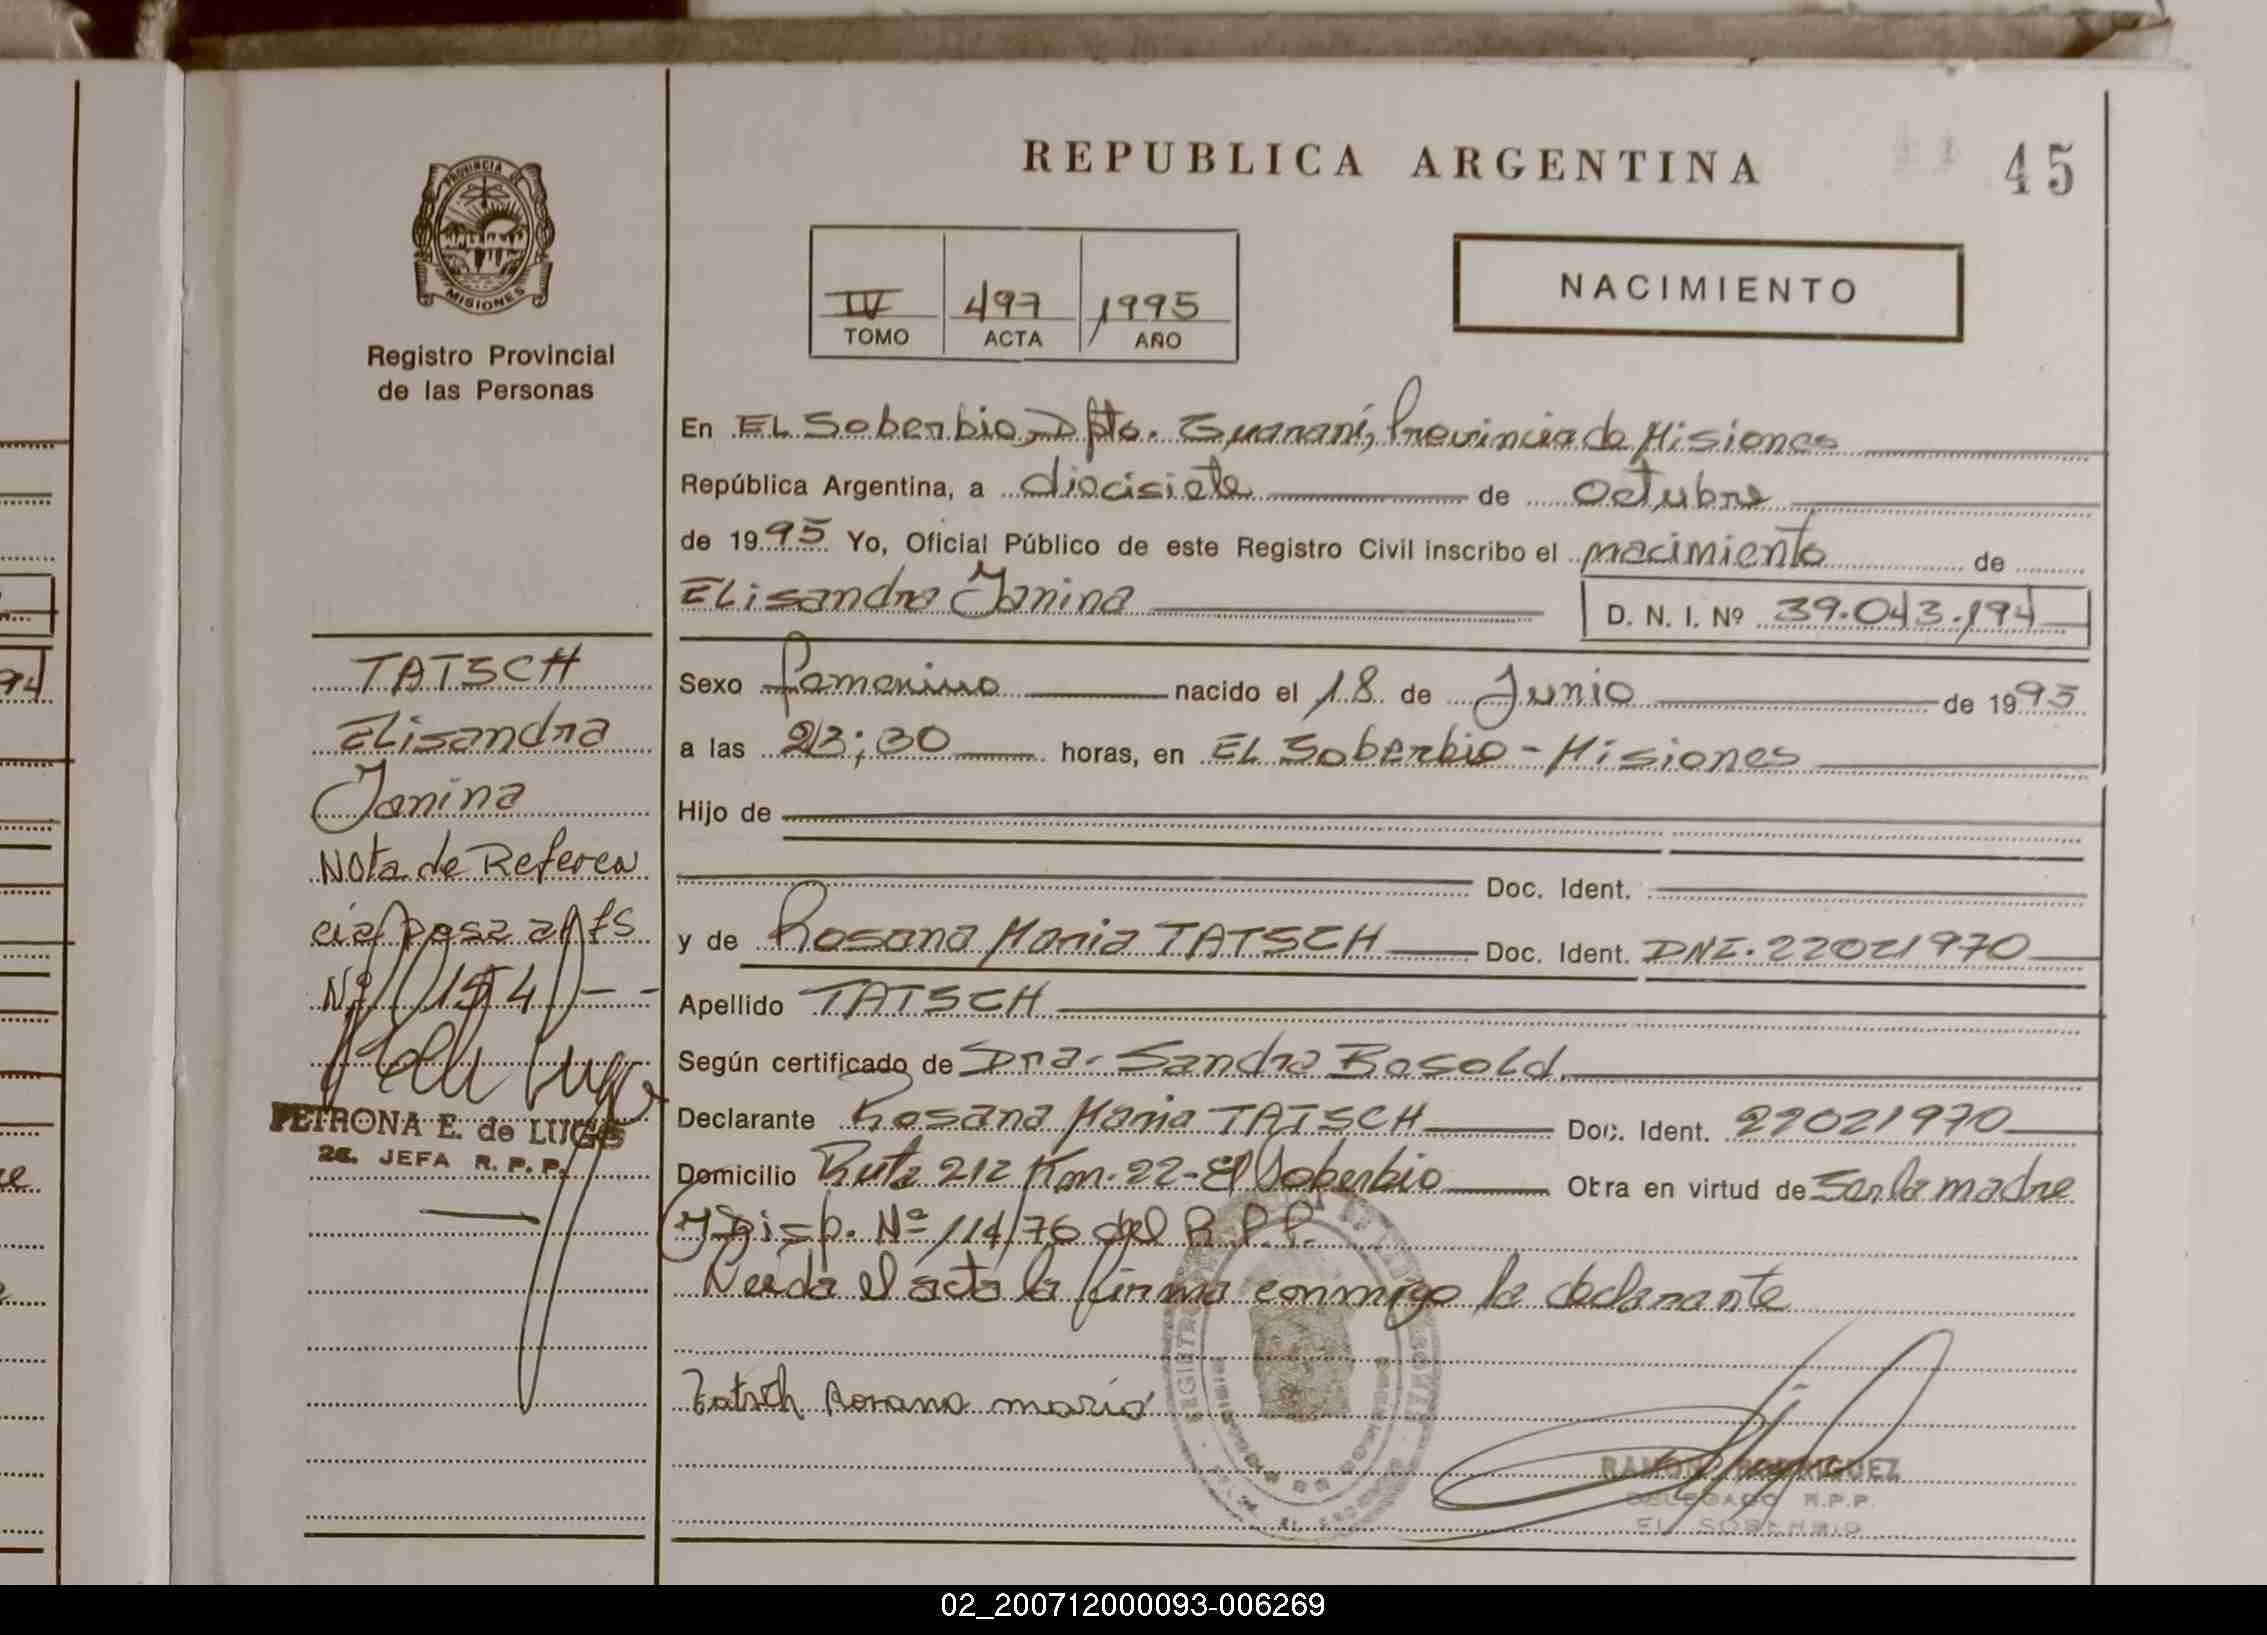 REPUBLICA ARGENTINA
45
PROVINCIA DE
MISIONES
Registro Provincial
de las Personas
IV 497 1995
TOMO ACTA AÑO
NACIMIENTO
En EL Soberbio, Dpto. Guaraní, Provincia de Misiones
República Argentina, a diecisiete de Octubre
de 1995 Yo, Oficial Público de este Registro Civil inscribo el nacimiento de
ELisandra Janina D. N. I. Nº 39.043.194
Sexo femenino nacido el 18 de Junio de 1995
a las 23:30 horas, en EL Soberbio - Misiones
Hijo de
Doc. Ident.
y de Rosana Maria TATSCH Doc. Ident. DNI. 22021970
Apellido TATSCH
Según certificado de Dra. Sandra Basold.
Declarante Rosana Maria TATSCH Doc. Ident. 22021970
Domicilio Ruta 212 Km. 22 - El Soberbio Otra en virtud de Ser la madre
y Disp. Nº 114/76 del R.P.P.
Leida el acta la firma conmigo la declarante
Tatsch Rosana maria
RAMON RODRIGUEZ
DELEGADO R.P.P.
EL SOBERBIO
TATSCH
Elisandra
Janina
Nota de Referen
cia pasa al fs
Nº 154 - -
PETRONA E. de LUGO
2a. JEFA R. P. P.
94
02_200712000093-006269